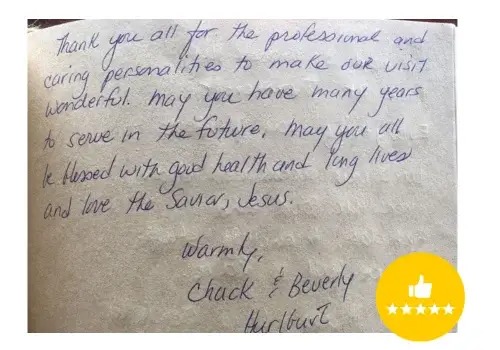 Thank you all for the professional and
caring personalities to make our visit
wonderful. May you have many years
to serve in the future. May you all
be blessed with good health and long lives
and love the Savior, Jesus.
Warmly,
Chuck & Beverly
Hurlburt